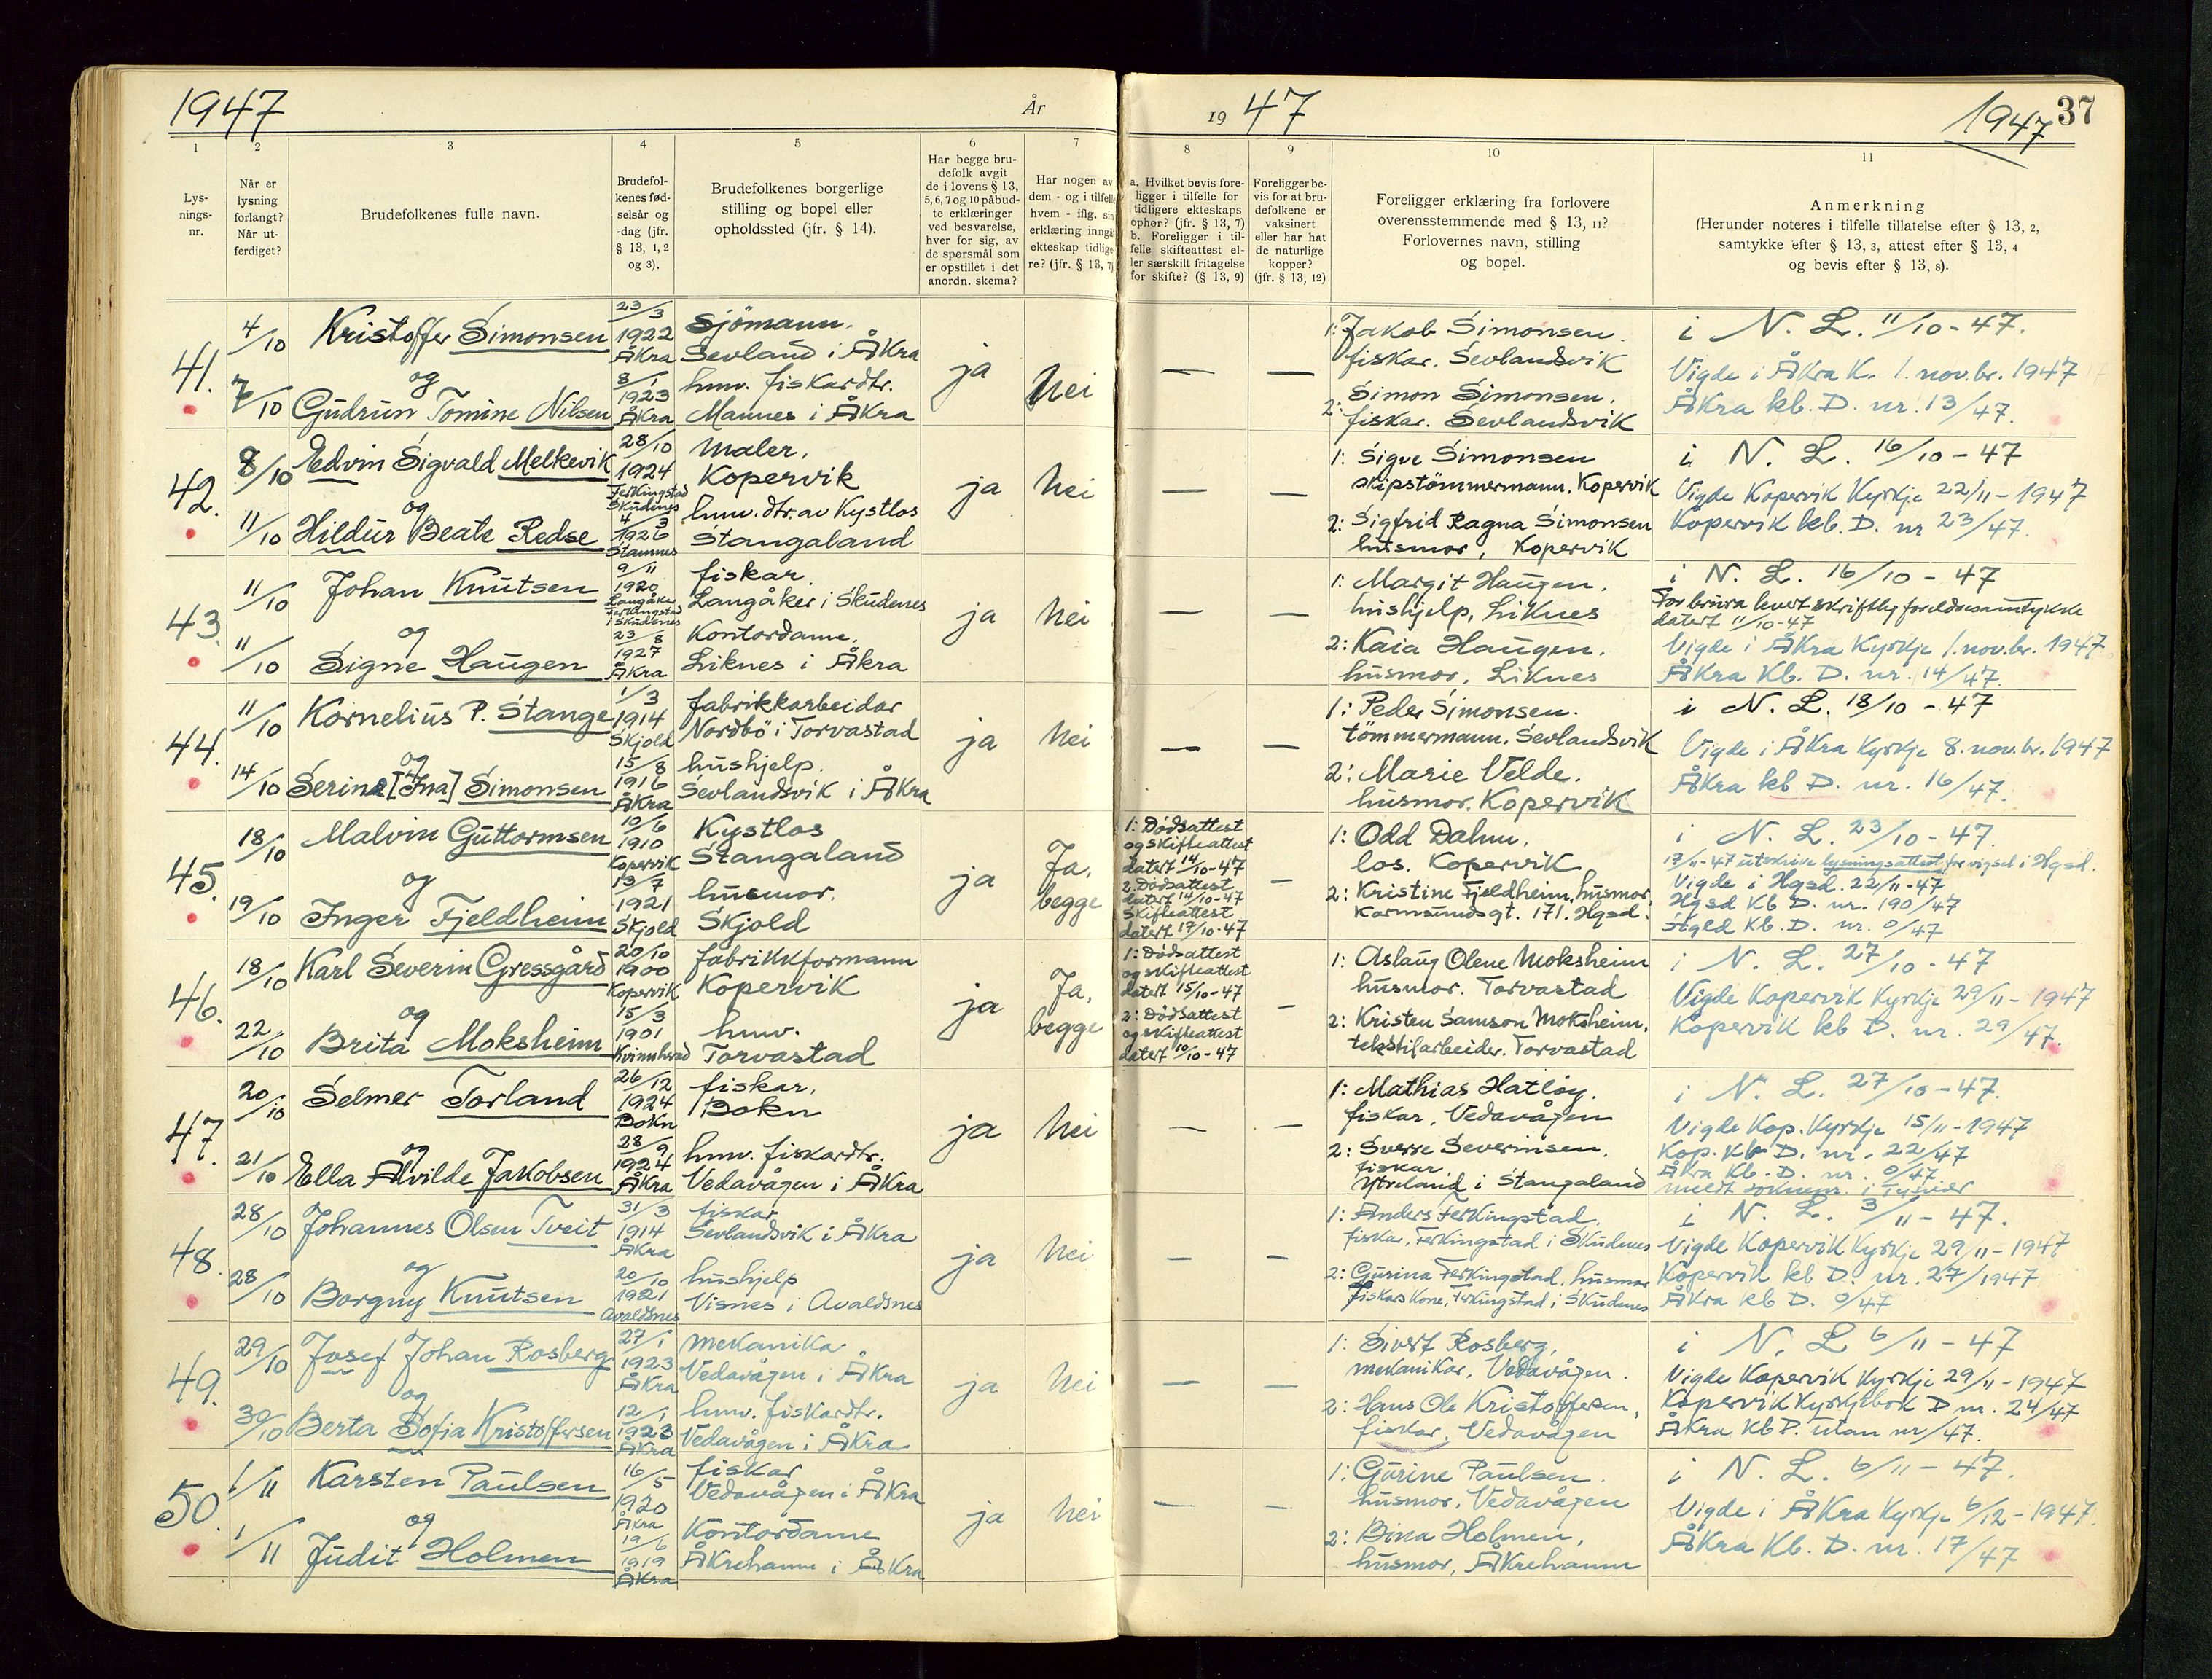 1947
År
19 47
1947 37
1
2
3
4
5
6
7
8
9
10
11
Lys-
nings-
nr.
Når er
lysning
forlangt?
Når ut-
ferdiget?
Brudefolkenes fulle navn.
Brudefol-
kenes fød-
selsår og
-dag (jfr.
§ 13, 1, 2
og 3).
Brudefolkenes borgerlige
stilling og bopel eller
opholdssted (jfr. § 14).
Har begge bru-
defolk avgit
de i lovens § 13,
5, 6, 7 og 10 påbud-
te erklæringer
ved besvarelse,
hver for sig, av
de spørsmål som
er opstillet i det
anordn. skema?
Har nogen av
dem - og i tilfelle
hvem - iflg. sin
erklæring inngå
ekteskap tidlige-
re? (jfr. § 13, 7).
a. Hvilket bevis fore-
ligger i tilfelle for
tidligere ekteskaps
ophør? (jfr. § 13, 7)
b. Foreligger i til-
felle skifteattest el-
ler særskilt fritagelse
for skifte? (§ 13, 9)
Foreligger be-
vis for at bru-
defolkene er
vaksinert
eller har hat
de naturlige
kopper?
(jfr. § 13, 12)
Foreligger erklæring fra forlovere
overensstemmende med § 13, 11?
Forlovernes navn, stilling
og bopel.
Anmerkning
(Herunder noteres i tilfelle tillatelse efter § 13, 2,
samtykke efter § 13, 3, attest efter § 13, 4
og bevis efter § 13, 8).
41.
4/10
7/10
Kristoffer Simonsen
og
Gudrun Tomine Nilsen
23/3
1922
Åkra
8/1
1923
Åkra
Sjömann.
Sevland i Åkra
hmv. fiskardtr.
Mannes i Åkra
ja
Nei
—
—
1: Jakob Simonsen.
fiskar. Sevlandsvik
2: Simon Simonsen.
fiskar. Sevlandsvik
i N. L. 11/10-47.
Vigde i Åkra K. 1. nov.br. 1947
Åkra kb. D. nr. 13/47.
42.
8/10
11/10
Edvin Sigvald Melkevik
og
Hildur Beate Redse
28/10
1924
Ferkingstad
Skudenes
4/3
1926
Stamnes
Maler.
Kopervik
hmv. dtr. av Kystlos
Stangaland
ja
Nei
—
—
1: Sigve Simonsen
skipstömmermann. Kopervik
2: Sigfrid Ragna Simonsen
husmor, Kopervik
i N. L. 16/10-47
Vigde Kopervik Kyrkje 22/11-1947
Kopervik kb. D. nr 23/47.
43.
11/10
11/10
Johan Knutsen
og
Signe Haugen
9/11
1920
Langåker
Ferkingstad
i Skudenes
23/8
1927
Åkra
fiskar.
Langåker i Skudenes
Kontordame.
Liknes i Åkra
ja
Nei
—
—
1: Margit Haugen.
hushjelp, Liknes
2: Kaia Haugen.
husmor, Liknes
i N. L. 16/10-47
For brura levert skriftleg foreldresamtykke
datert 11/10-47
Vigde i Åkra Kyrkje 1. nov.br. 1947
Åkra Kb. D. nr. 14/47.
44.
11/10
14/10
Kornelius P. Stange
og
Serine [Ina] Simonsen
1/3
1914
Skjold
15/8
1916
Åkra
fabrikkarbeidar
Nordbö i Torvastad
hushjelp.
Sevlandsvik i Åkra
ja
Nei
—
—
1: Peder Simonsen.
tömmermann. Sevlandsvik
2: Marie Velde.
husmor. Kopervik
i N. L. 18/10-47
Vigde i Åkra Kyrkje 8. nov.br. 1947
Åkra kb D. nr. 16/47.
45.
18/10
19/10
Malvin Guttormsen
og
Inger Fjeldheim
10/6
1910
Kopervik
13/7
1921
Skjold
Kystlos
Stangaland
husmor.
Skjold
ja
Ja,
begge
1: Dödsattest
og skifteattest
datert 14/10-47
2. Dödsattest
datert 14/10-47
Skifteattest
datert 17/10-47
—
1: Odd Dahm.
los. Kopervik
2: Kristine Fjeldheim, husmor,
Karmsundsgt. 171. Hgsd.
i N. L. 23/10-47.
17/11-47 utskrive lysningsattest for vigsel i Hgsd.
Vigde i Hgsd. 22/11-47
Hgsd Kb D. nr. 190/47
Stgld Kb. D. nr. 0/47
46.
18/10
22/10
Karl Severin Gressgård
og
Brita Moksheim
20/10
1900
Kopervik
15/3
1901
Kvinnherad
fabrikkformann
Kopervik
hmv.
Torvastad
ja
Ja,
begge
1: Dödsattest
og skifteattest
datert 15/10-47
2: Dödsattest
og skifteattest
datert 10/10-47
—
1: Aslaug Olene Moksheim
husmor. Torvastad
2: Kristen Samson Moksheim.
tekstilarbeider. Torvastad
i N. L. 27/10-47
Vigde Kopervik Kyrkje 29/11-1947
Kopervik kb D. nr. 29/47.
47.
20/10
21/10
Selmer Torland
og
Ella Alvilde Jakobsen
26/12
1924
Bokn
28/9
1924
Åkra
fiskar.
Bokn
hmv. fiskardtr.
Vedavågen i Åkra
ja
Nei
—
—
1: Mathias Hatløy.
fiskar, Vedavågen
2: Sverre Severinsen.
fiskar.
Ytreland i Stangaland
i N. L. 27/10-47.
Vigde Kop. Kyrkje 15/11-1947
Kop. Kb D. nr. 22/47
Åkra Kb. D. nr. 0/47
meldt soknepr. i Tysvær
48.
28/10
28/10
Johannes Olsen Tveit
og
Borgny Knutsen
31/3
1914
Åkra
20/10
1921
Avaldsnes
fiskar
Sevlandsvik i Åkra
hushjelp
Visnes i Avaldsnes
ja
Nei
—
—
1: Anders Ferkingstad.
fiskar. Ferkingstad i Skudenes
2: Gurina Ferkingstad. husmor
fiskars kone, Ferkingstad i Skudenes
i N. L. 3/11-47.
Vigde Kopervik Kyrkje 29/11-1947
Kopervik kb D. nr. 27/1947
Åkra kb D. 0/47
49.
29/10
30/10
Josef Johan Rosberg
og
Berta Sofia Kristoffersen
27/1
1923
Åkra
12/1
1923
Åkra
mekanikar
Vedavågen i Åkra
hmv. fiskardtr.
Vedavågen i Åkra
ja
Nei
—
—
1: Sivert Rosberg,
mekanikar. Vedavågen.
2: Hans Ole Kristoffersen,
fiskar. Vedavågen
i N. L 6/11-47
Vigde Kopervik Kyrkje 29/11-1947
Kopervik Kyrkjebok D nr. 24/47
Åkra Kb D. utan nr/47.
50.
1/11
1/11
Karsten Paulsen
og
Judit Holmen
16/5
1920
Åkra
19/6
1919
Åkra
fiskar
Vedavågen i Åkra
Kontordame
Åkrehamn i Åkra
ja
Nei
—
—
1: Gurine Paulsen.
husmor. Vedavågen
2: Bina Holmen,
husmor, Åkrehamn
i N. L. 6/11-47.
Vigde i Åkra Kyrkje 6/12-1947.
Åkra Kb. D. nr. 17/47